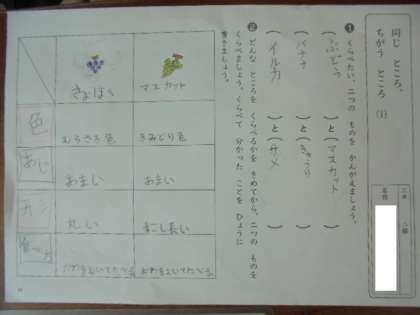 同じ ところ、
ちがう ところ (1)
1 くらべたい、二つの ものを かんがえましょう。
(ぶどう)と(マスカット)
(バナナ)と(きゅうり)
(イルカ)と(サメ)
2 どんな ところを くらべるかを きめてから、二つの ものを
くらべましょう。くらべて 分かった ことを ひょうに
書きましょう。
きょほう マスカット
色 むらさき色 きみどり色
あじ あまい あまい
丸い すこし長い